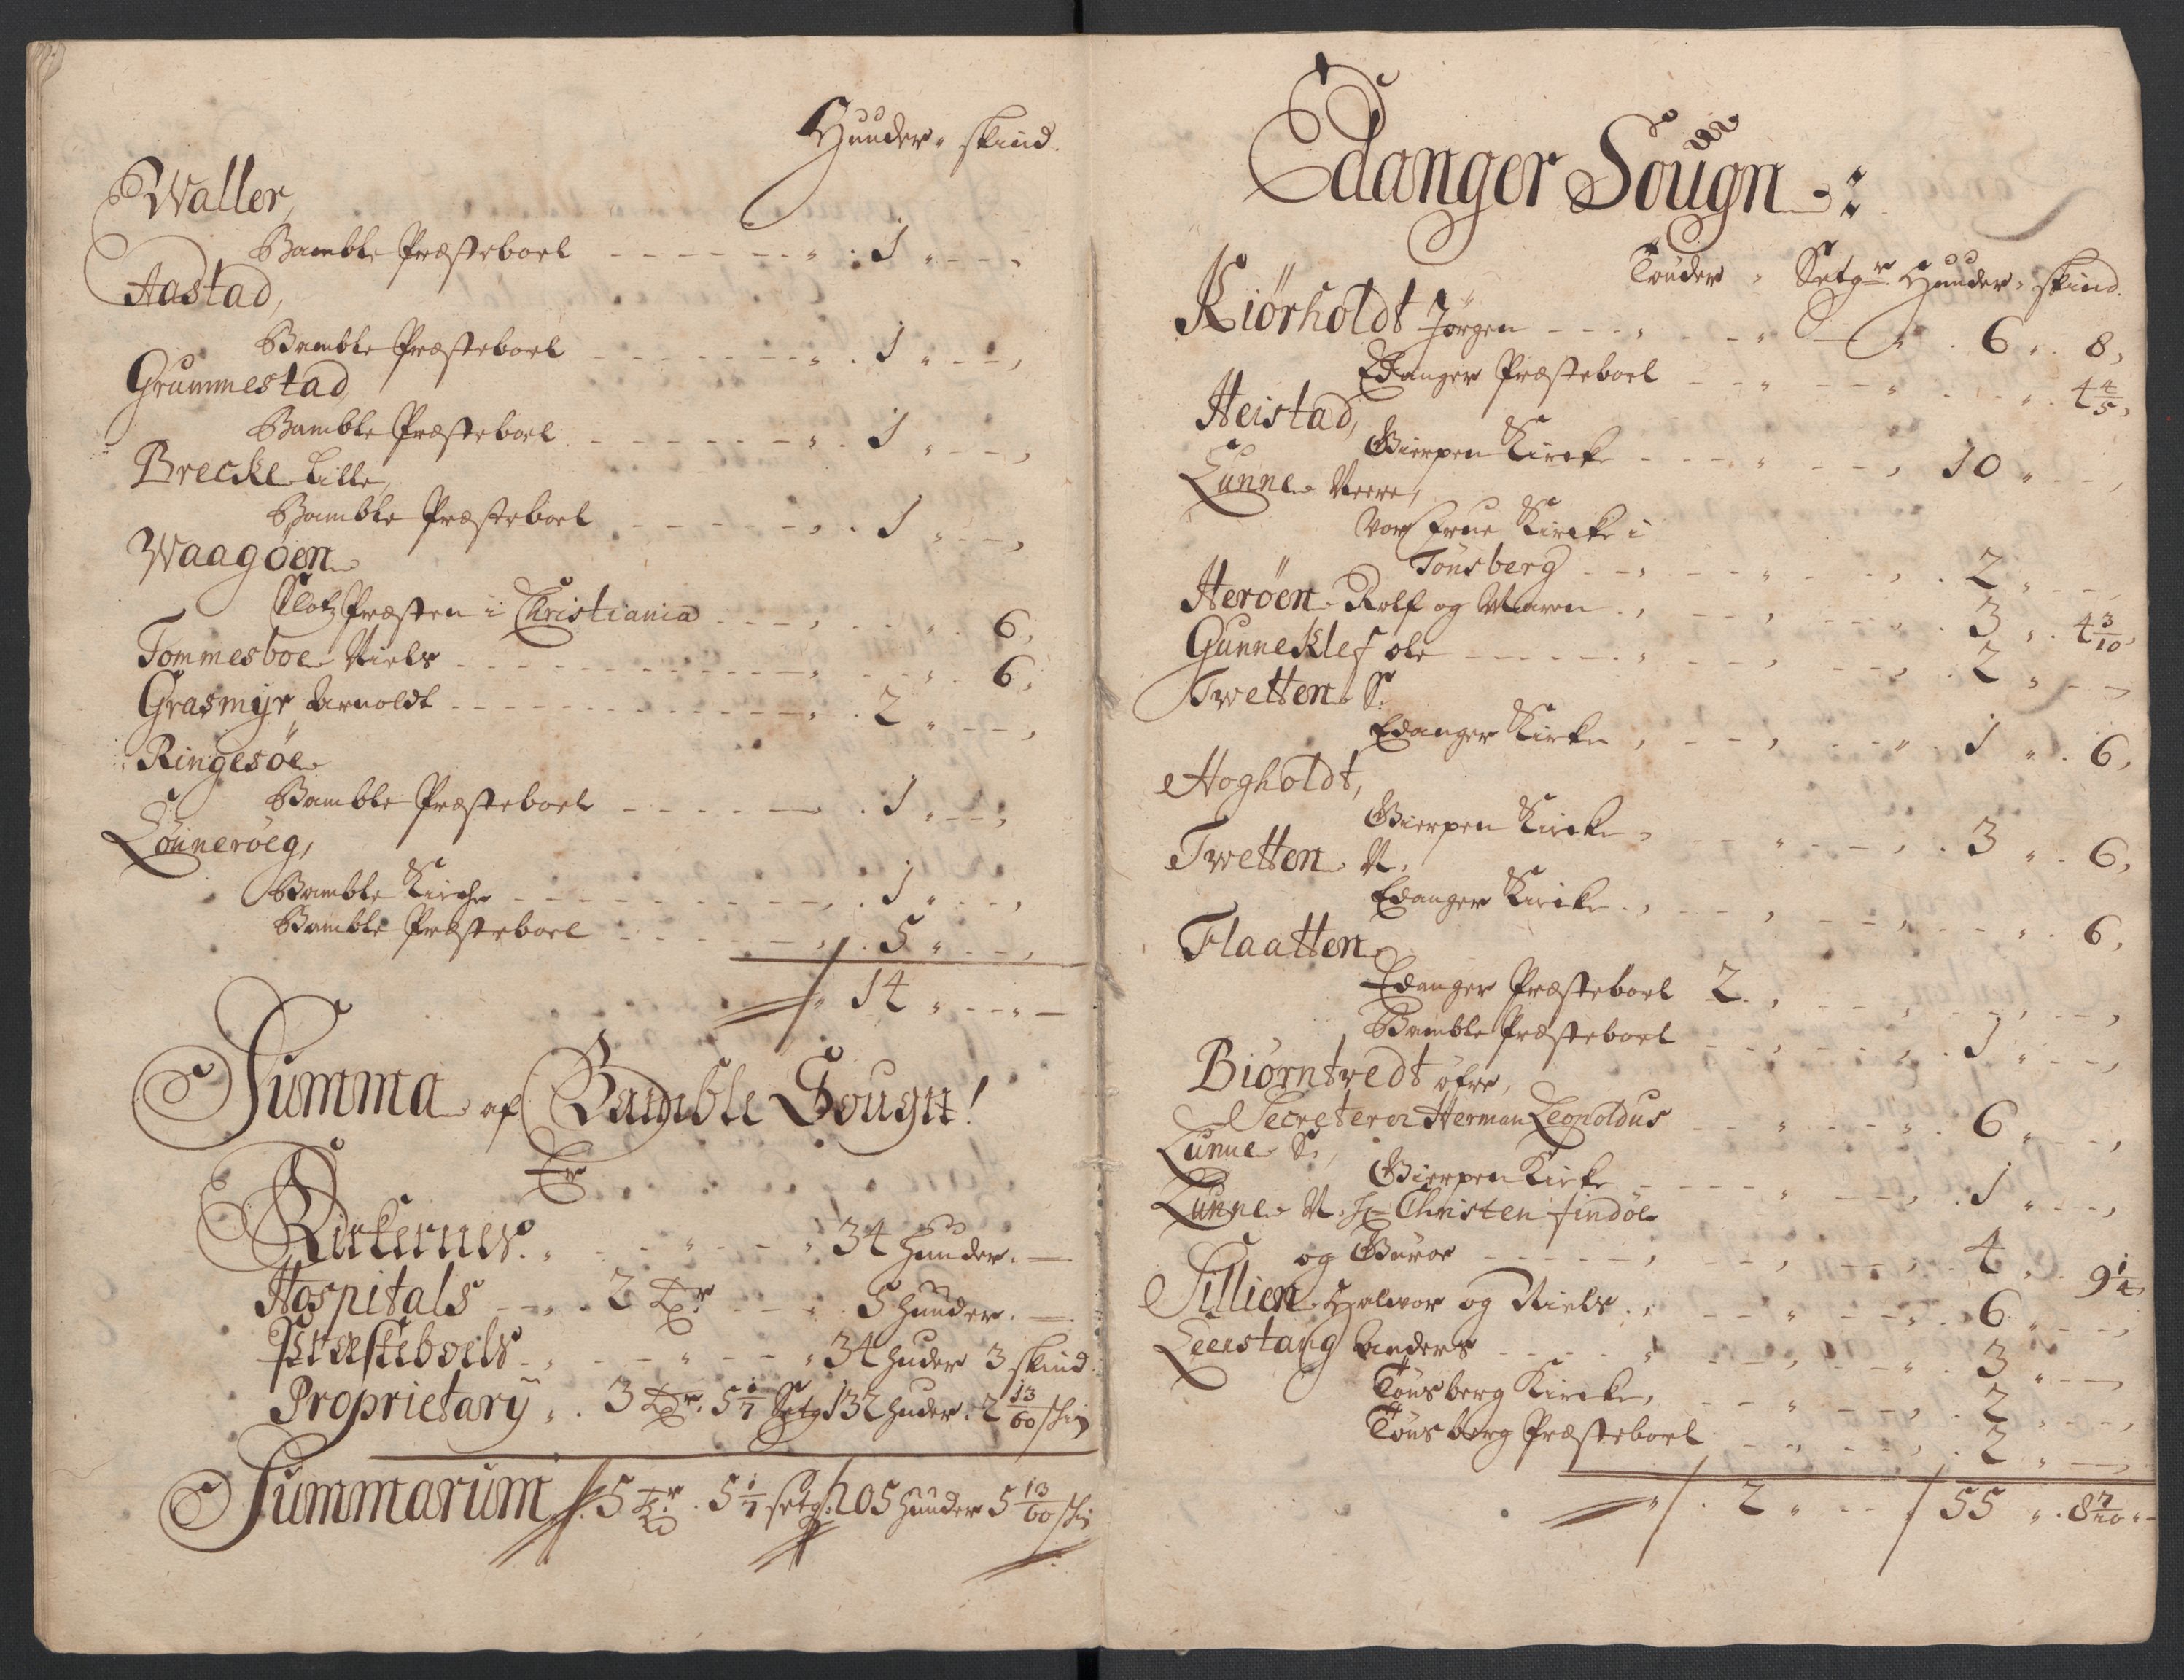 Huuder „ skind.
Waller,
Bamble Præsteboel - - - - - - „ . 1 „ - - -
Aastad,
Bamble Præsteboel - - - - - - „ . 1 „ - - ,
Grummestad
Bamble Præsteboel - - - - - - „ . 1 „ - - ,
Brecke Lille,
Bamble Præsteboel - - - - - , . 1 „ - - ,
Waagöen
Slotz Præsten i Christiania - - - , - - „ . 6,
Tommesboe Niels - - - - - - - - - „ . 6,
Grasmyr Arnoldt - - - - - - - - - „ . 2 „ - - ,
Ringesöe
Bamble Præsteboel - - - - - . 1 „ - - ,
Lönneröeg,
Bamble Kirche - - - - - - - - , . 1 „ - - ,
Bamble Præsteboel - - - - - , . 5 „ - - ,
„ 14 „ - - „ -
Summa af Bamble Sougn!
Er
Kirkernes. „ - - „ - - „ 34 huuder. —
Hospitals - - „ . 2 Tdr - - „ . 5 huuder. —
Præsteboels - „ - - „ - - „ 34 huder 3 skind.
Proprietarÿ „ . 3 Tdr. 5 1/7 Setg 132 huder. 2 13/60 ski
Summarum 5 Tdr. 5 1/7 setg. 205 huuder 5 13/60 ski
Edanger Sougn :
Tönder „ Setgr Huuder „ skind.
Kiörholdt Jörgen - - - „ - - „ - - „ . 6 „ . 8,
Edanger Præsteboel - - „ - - „ - - „ . 4 4/5,
Heistad,
Gierpen Kircke - - - „ - - , 10 „ - - ,
Lunne Neere,
Vor Frue Kircke i
Tönsberg - - , - - „ - - , . 2 „ - - ,
Heröen Rolf og Maren . , - - , - - „ . 3 „ . 4 3/10,
Gunneklef ole - - - - - „ - - , - - , . 2 „ - - ,
Twetten S:
Edanger Kirke , - - , - - „ . 1 „ . 6,
Hogholdt,
Gierpen Kircke , - - „ - - , . 3 „ . 6,
Twetten N.
Edanger Kircke . , - - , - - , - - „ . 6,
Flaatten
Edanger Præsteboel 2 . , - - , - - , - - ,
Bamble Præsteboel - - , - - „ . 1 „ - - ,
Biörntvedt öfre,
Secreterer Herman Leopoldus - - „ - - „ . 6 „ - - ,
Lunne S.,
Gierpen Kirke - - - - „ - - , . 1 „ - - ,
Lunne N. Hr Christen Findöe
og Guror - - - - - , - - , - - , . 4 „ . 9 1/4,
Tillien Halvor og Niels . , - - „ - - „ . 6 „ - - ,
Leerstang Anders - - - - „ - - , - - „ . 3 „ - - ,
Tönsberg Kircke, - - „ - - , . 2 „ - - ,
Tönsberg Præsteboel - - „ - - , . 2 „ - - ,
„ . 2 „ - - 55 „ . 8 7/10 „ -